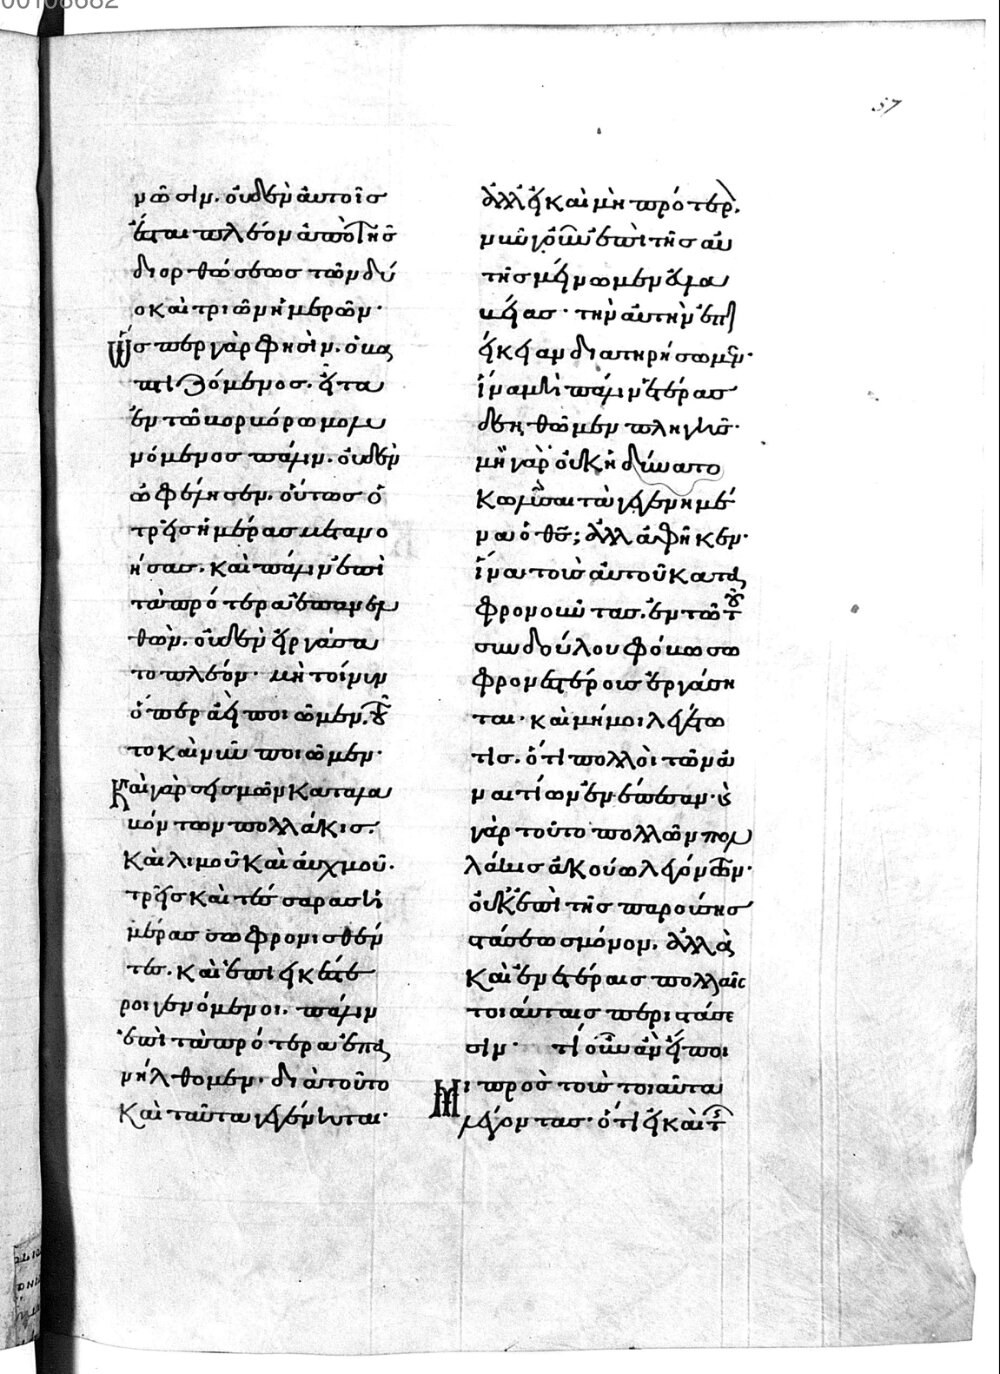 57
μῶσιν. οὐδὲν αὐτοῖς
ἔσται πλέον ἀπὸ τῆς
διορθώσεως τῶν δύ
ο καὶ τριῶν ἡμερῶν·
Ὥσπερ γὰρ φησὶν. ὁ βα
πτιζόμενος. εἶτα
ἐν τῶ βορβόρω μολυ
νόμενος πάλιν. οὐδὲν
ὠφέλησεν. οὕτως ὁ
τρεῖς ἡμέρας μετανο
ήσας. καὶ πάλιν ἐπὶ
τὰ πρότερα ἐπανελ
θὼν. οὐδὲν εἰργάσα
το πλέον· μὴ τοίνυν
ὅπερ ἀεὶ ποιῶμεν. τοῦ
το καὶ νῦν ποιῶμεν·
Καὶ γὰρ σεισμῶν καταλα
βόντων πολλάκις.
καὶ λιμοῦ καὶ αὐχμοῦ.
τρεῖς καὶ τέσσαρας ἡ
μέρας σωφρονισθέν
τες. καὶ ἐπιεικέστε
ροι γενόμενοι. πάλιν
ἐπὶ τὰ πρότερα ἐπα
νήλθομεν· διὰ τοῦτο
καὶ ταῦτα γεγένηται·
ἀλλ' εἰ καὶ μὴ πρότερον.
νῦν γοῦν ἐπὶ τῆς αὐ
τῆς μείνωμεν εὐλα
βείας· τὴν αὐτὴν ἐπι
είκειαν διατηρήσωμεν·
ἵνα μὴ πάλιν ἑτέρας
δεηθῶμεν πληγῆς·
μὴ γὰρ οὐκ ἠδύνατο
κωλῦσαι τὰ γεγενημέ
να ὁ θς; ἀλλ' ἀφῆκεν·
ἵνα τοὺς αὐτοῦ κατα
φρονοῦντας. ἐν τῶ τοῦ
συνδούλου φόβω σω
φρονεστέροις ἐργάση
ται· καὶ μή μοι λεγέτω
τις. ὅτι πολλοὶ τῶν ἀ
ναιτίων ἐνέπεσαν·
γὰρ τοῦτο πολλῶν πολ
λάκις ἀκούω λεγόντων·
οὐκ ἐπὶ τῆς παρούσης
στάσεως μόνον. ἀλλὰ
καὶ ἐν ἑτέραις πολλαῖς
τοιαύταις περιστάσε
σιν· τί οὖν ἂν εἴποι
μι πρὸς τοὺς τοιαῦτα
λέγοντας· ὅτι εἰ καὶ τ